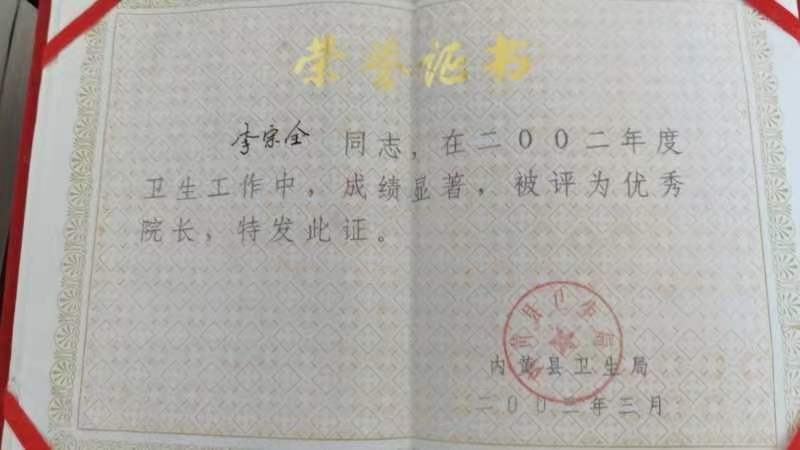 荣誉证书
李宗全 同志，在二００二年度
卫生工作中，成绩显著，被评为优秀
院长，特发此证。
内黄县卫生局
内黄县卫生局
二００三年三月